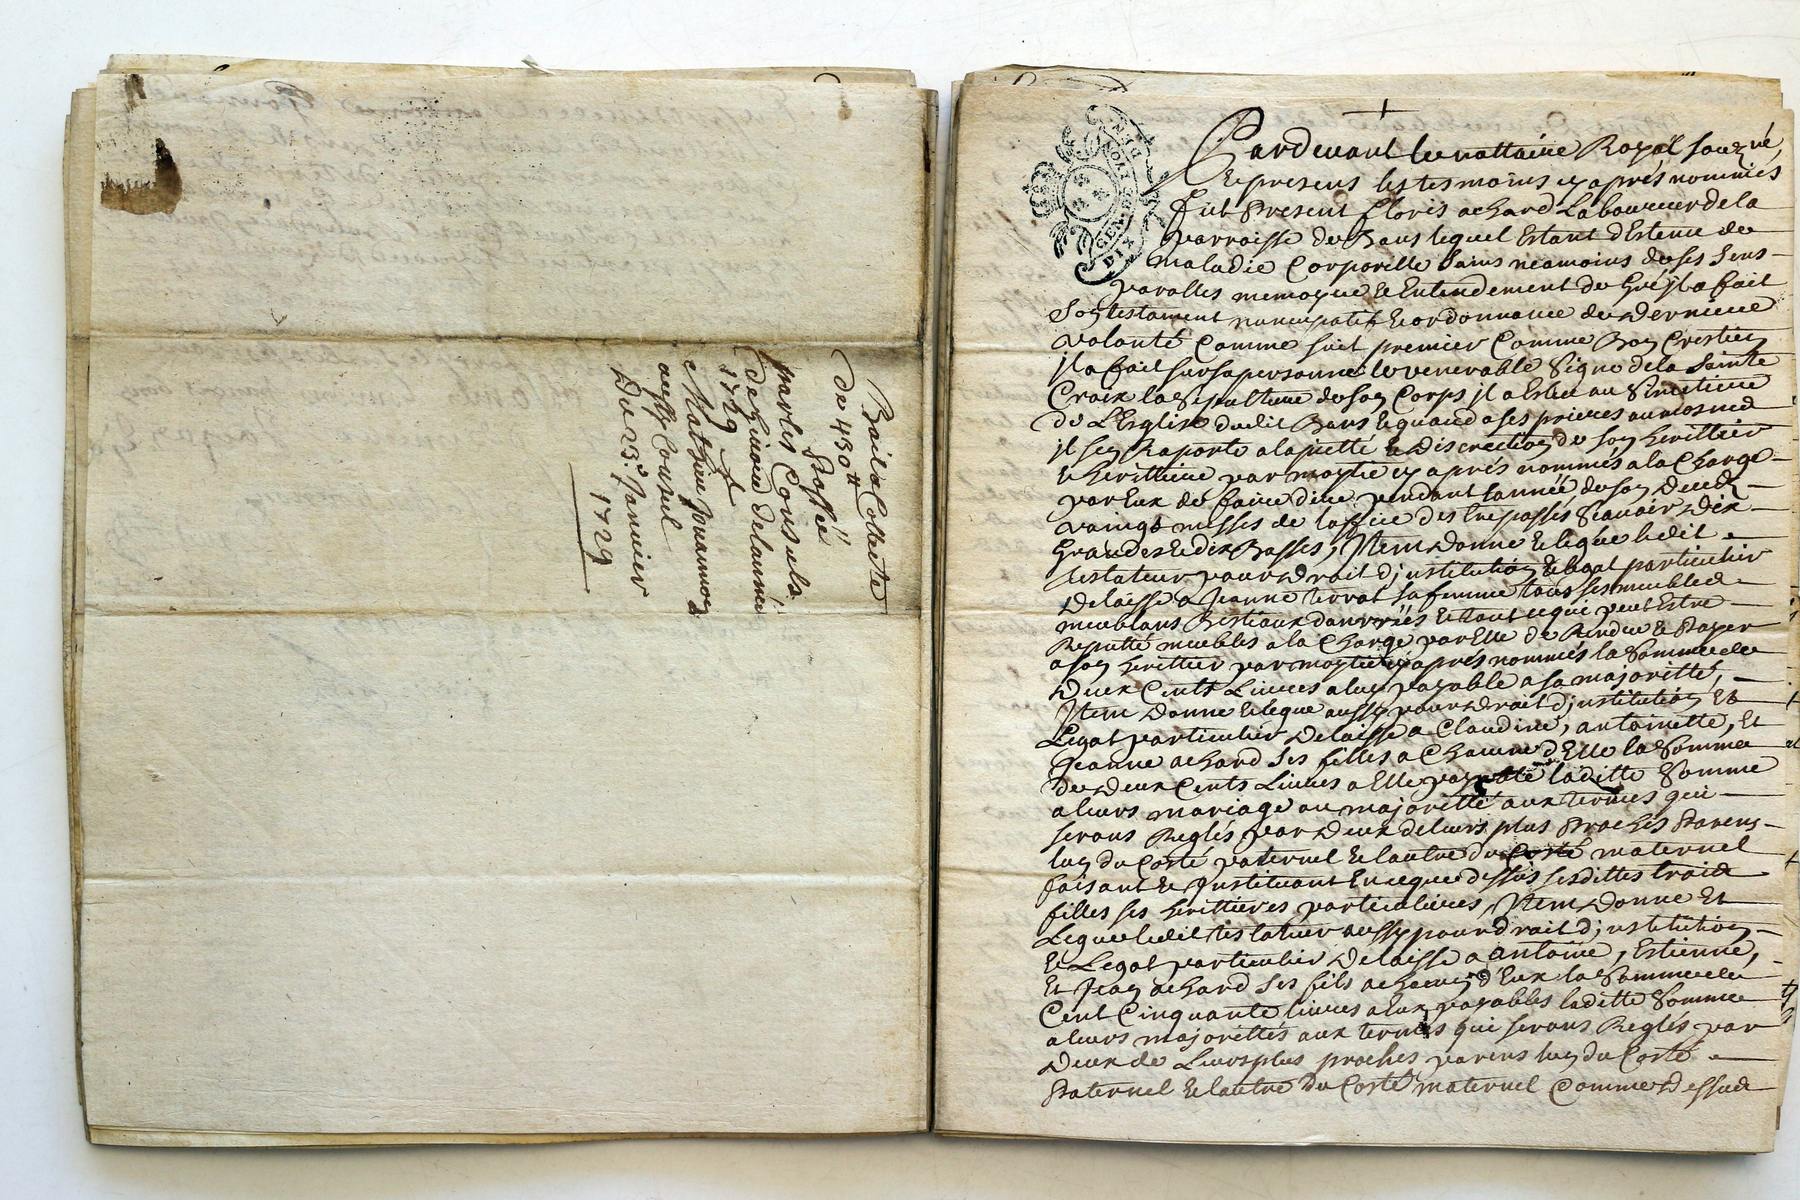 Bail a Collecte
De 430tt
passé
par les Consuls
de Luiore de l'année
1729
a
Mathieu
aussy Consul
Du 23e Janvier
1729
GEN DE LYON
DIX DEN
Pardevant le nottaire Royal souz.né,
et presens les tesmoins cy aprés nommés
fut Present floris achard Laboureur de la
parroisse de Bans lequel Estant dEstenu de
maladie Corporelle sains neamoins de ses sens
parolles memoyre et Entendement de gré jl a fait
son testament nuncupatif et ordonnance de derniere
volonté Comme suit premier Comme Bon Crestien
jl a fait sur sa personne le venerable Signe de la Sainte
Croix la Sepulture de son Corps jl a Esleu au Simetiere
de L'Eglise dudit Bans et quand a ses prieres aumosnes
jl s'en Raporte a la pietté et discretion de son heritier
et herittiere par moytié cy aprés nommés a la Charge
par Eux de faire dire pendant l'année de son deceds
vaingt messes de l'office des trepassés Scavoir dix
Grandes et dix Basses, Jtem donne et legue ledit
testateur pour droit d'jnstitution et legat particulier
delaisse a Jeanne terrat sa femme tous ses meubles
meublans Bestiaux danrréés et tout ce qui peut Estre
Reputté meubles a la Charge par Elle de Rendre et Payer
a son herittier par moytié cy aprés nommés la Somme de
Deux Cents Livres a luy payable a sa majoritté,
Jtem donne et legue aussy pour droit d'jnstitution Et
Legat particulier delaisse a Claudine, antoinette, Et
Jeanne achard ses filles a Chacune d'Elle la Somme
de deux Cents Livres a Elle payable laditte Somme
a leurs mariage ou majoritté aux termes qui
serons Reglés par deux de leurs plus Proches Parens
lun du Costé paternel et lautre du Costé maternel
faisant et Jnstituant En ce que dessus sesdittes trois
filles ses herittieres particulieres, Jtem donne Et
Legue ledit testateur aussy pour droit d'jnstitution
et Legat particulier delaisse a antoine, Estienne,
Et Jean achard ses fils a chacun d'Eux la Somme de
Cent Cinquante livres a Eux payables laditte Somme
a leurs majorittés aux termes qui serons Reglés par
deux de Leurs plus proches parens lun du Costé
Paternel et lautre du Costé maternel Comme dessus